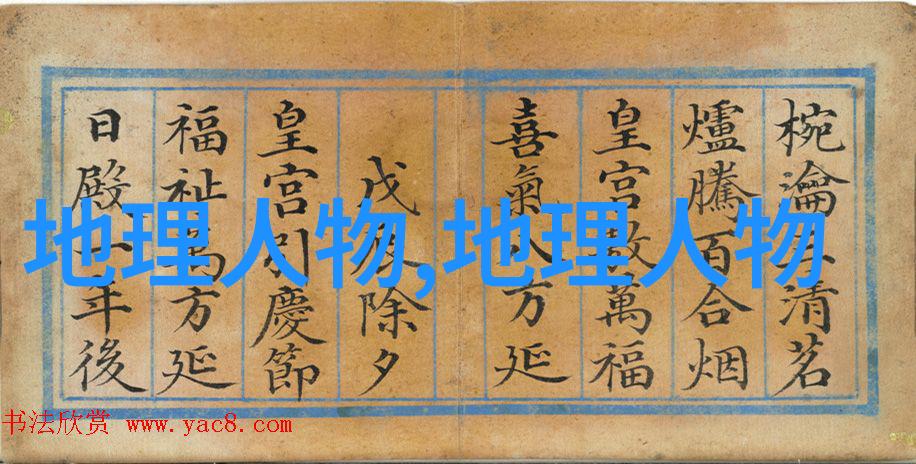 椀瀹三清茗
爐騰百合烟
皇宮敷萬福
喜氣八方延
戊辰除夕
皇宮引慶節
福祉萬方延
日殿一年後
地理人物,地理人物
书法欣赏 www.yac8.com